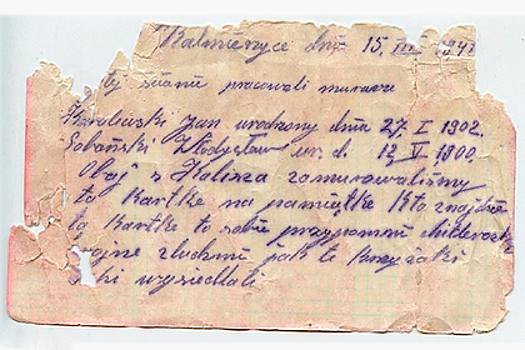 Kalmierzyce dnia 15. III 1941
tej ścianie pracowali murarze
Karolewski Jan urodzony dnia 27. I 1902.
Sobański Władysław ur. d. 12 V. 1900.
Obaj z Kalisza zamurowaliśmy
to kartke na pamiątke Kto znajdzie
tą kartke to sobie przypomni
wojne z ludzmi jak te krzyżaki
wysiedlali